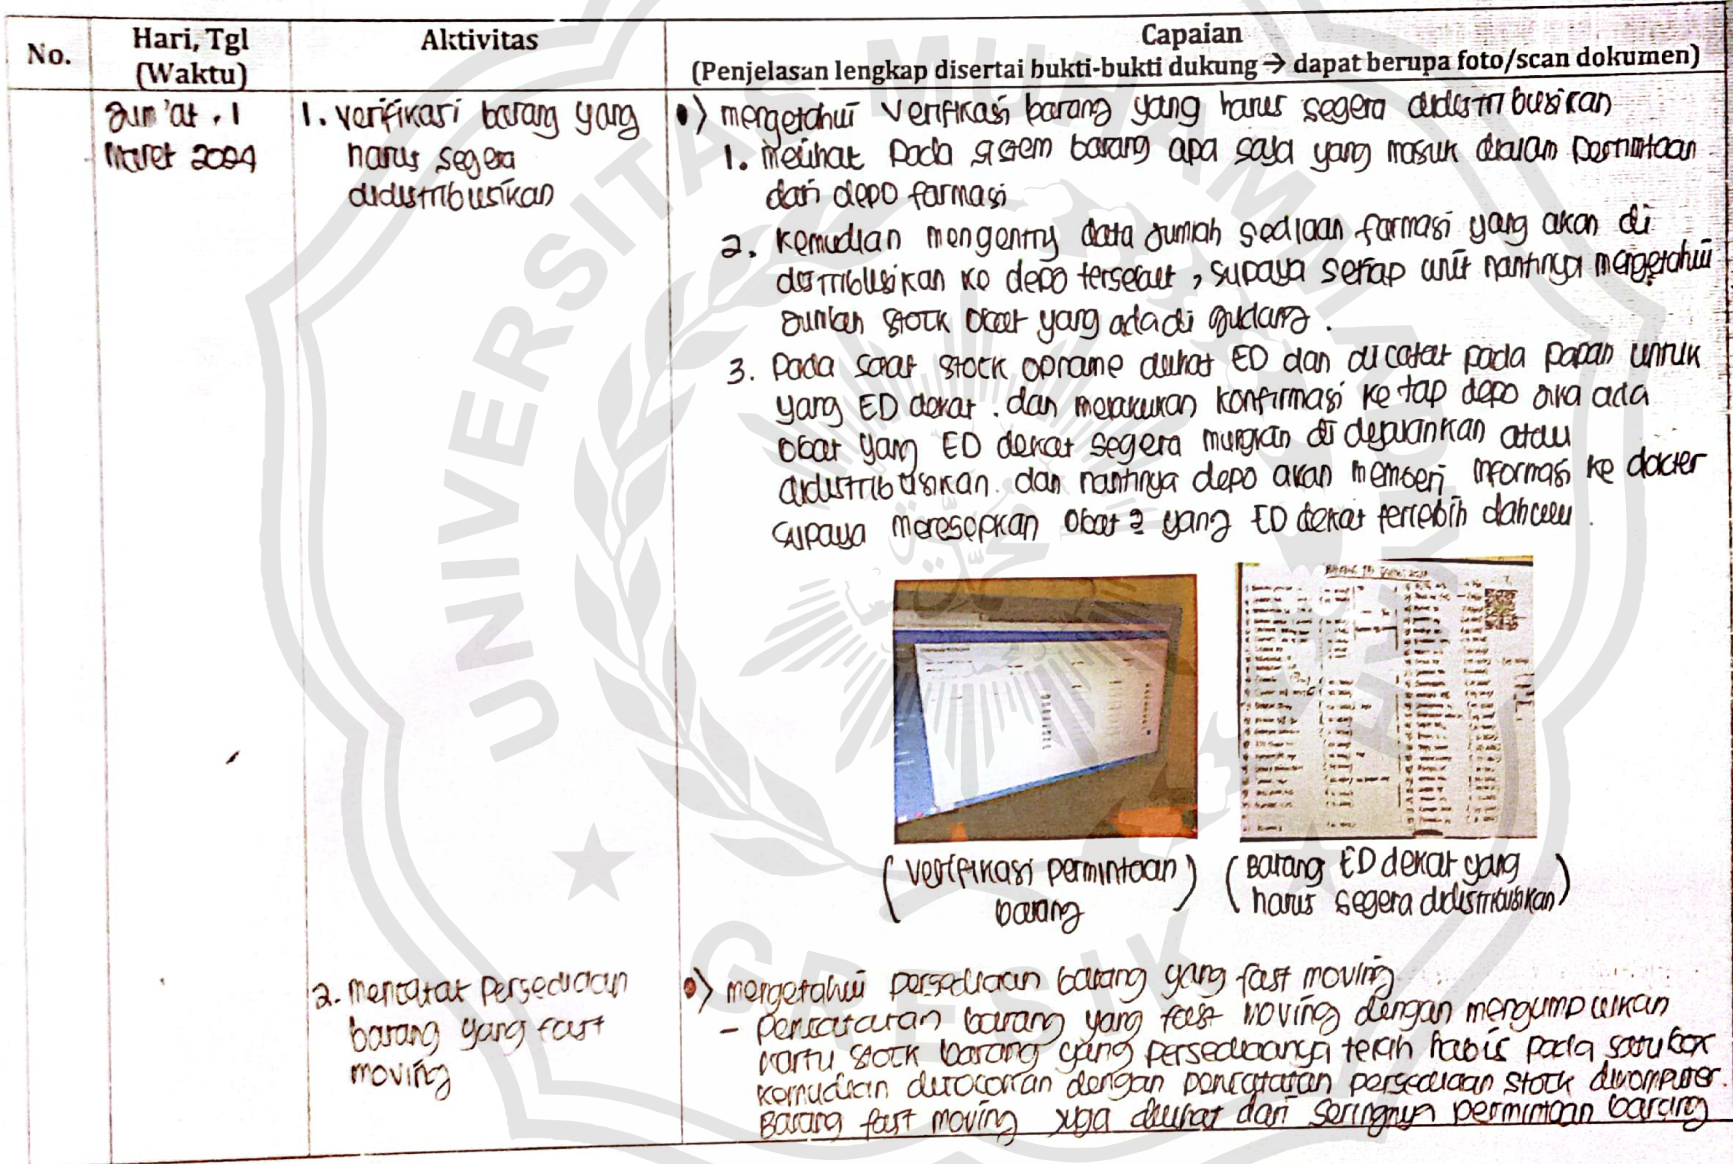 No.
Hari, Tgl
(Waktu)
Aktivitas
Capaian
(Penjelasan lengkap disertai bukti-bukti dukung → dapat berupa foto/scan dokumen)
Jum'at, 1
Maret 2024
1. Verifikasi barang yang
harus segera
didistribusikan
•) mengetahui Verifikasi barang yang harus segera didistribusikan
1. melihat pada sistem barang apa saja yang masuk dalam permintaan
dari depo farmasi
2. Kemudian mengentry data jumlah sediaan farmasi yang akan di
distribusikan ke depo tersebut, supaya setiap unit nantinya mengetahui
jumlah stock obat yang ada di gudang.
3. Pada saat stock opname dilihat ED dan dicatat pada papan untuk
yang ED dekat. dan melakukan konfirmasi ke tap depo jika ada
obat yang ED dekat segera mungkin di dejalankan atau
didistribusikan. dan nantinya depo akan memberi informasi ke dokter
supaya meresepkan obat2 yang ED dekat terlebih dahulu.
(Verifikasi permintaan
barang)
(Barang ED dekat yang
harus segera didistribusikan)
2. mencatat Persediaan
barang yang fast
moving
•) mengetahui persediaan barang yang fast moving
- Pencatatan barang yang fast moving dengan mengumpulkan
kartu stock barang yang persediaanya telah habis pada satu box
kemudian dicocokan dengan pencatatan persediaan stock dikomputer.
Barang fast moving juga dilihat dari seringnya permintaan barang
UNIVERSITAS MUHAMMADIYAH
GRESIK